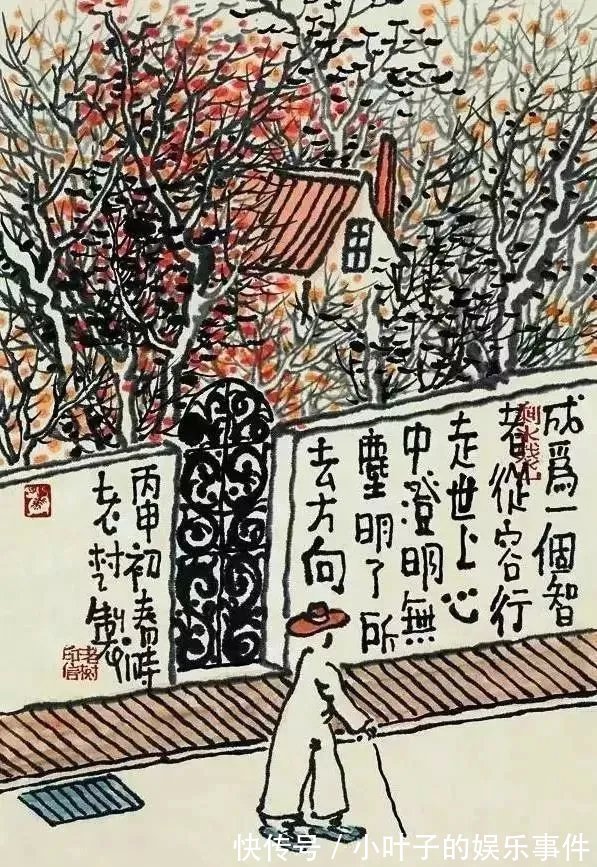 成爲一個智
者從容行
走世上心
中澄明無
塵明了所
去方向
丙申初春時
老树製
快传号 / 小叶子的娱乐事件